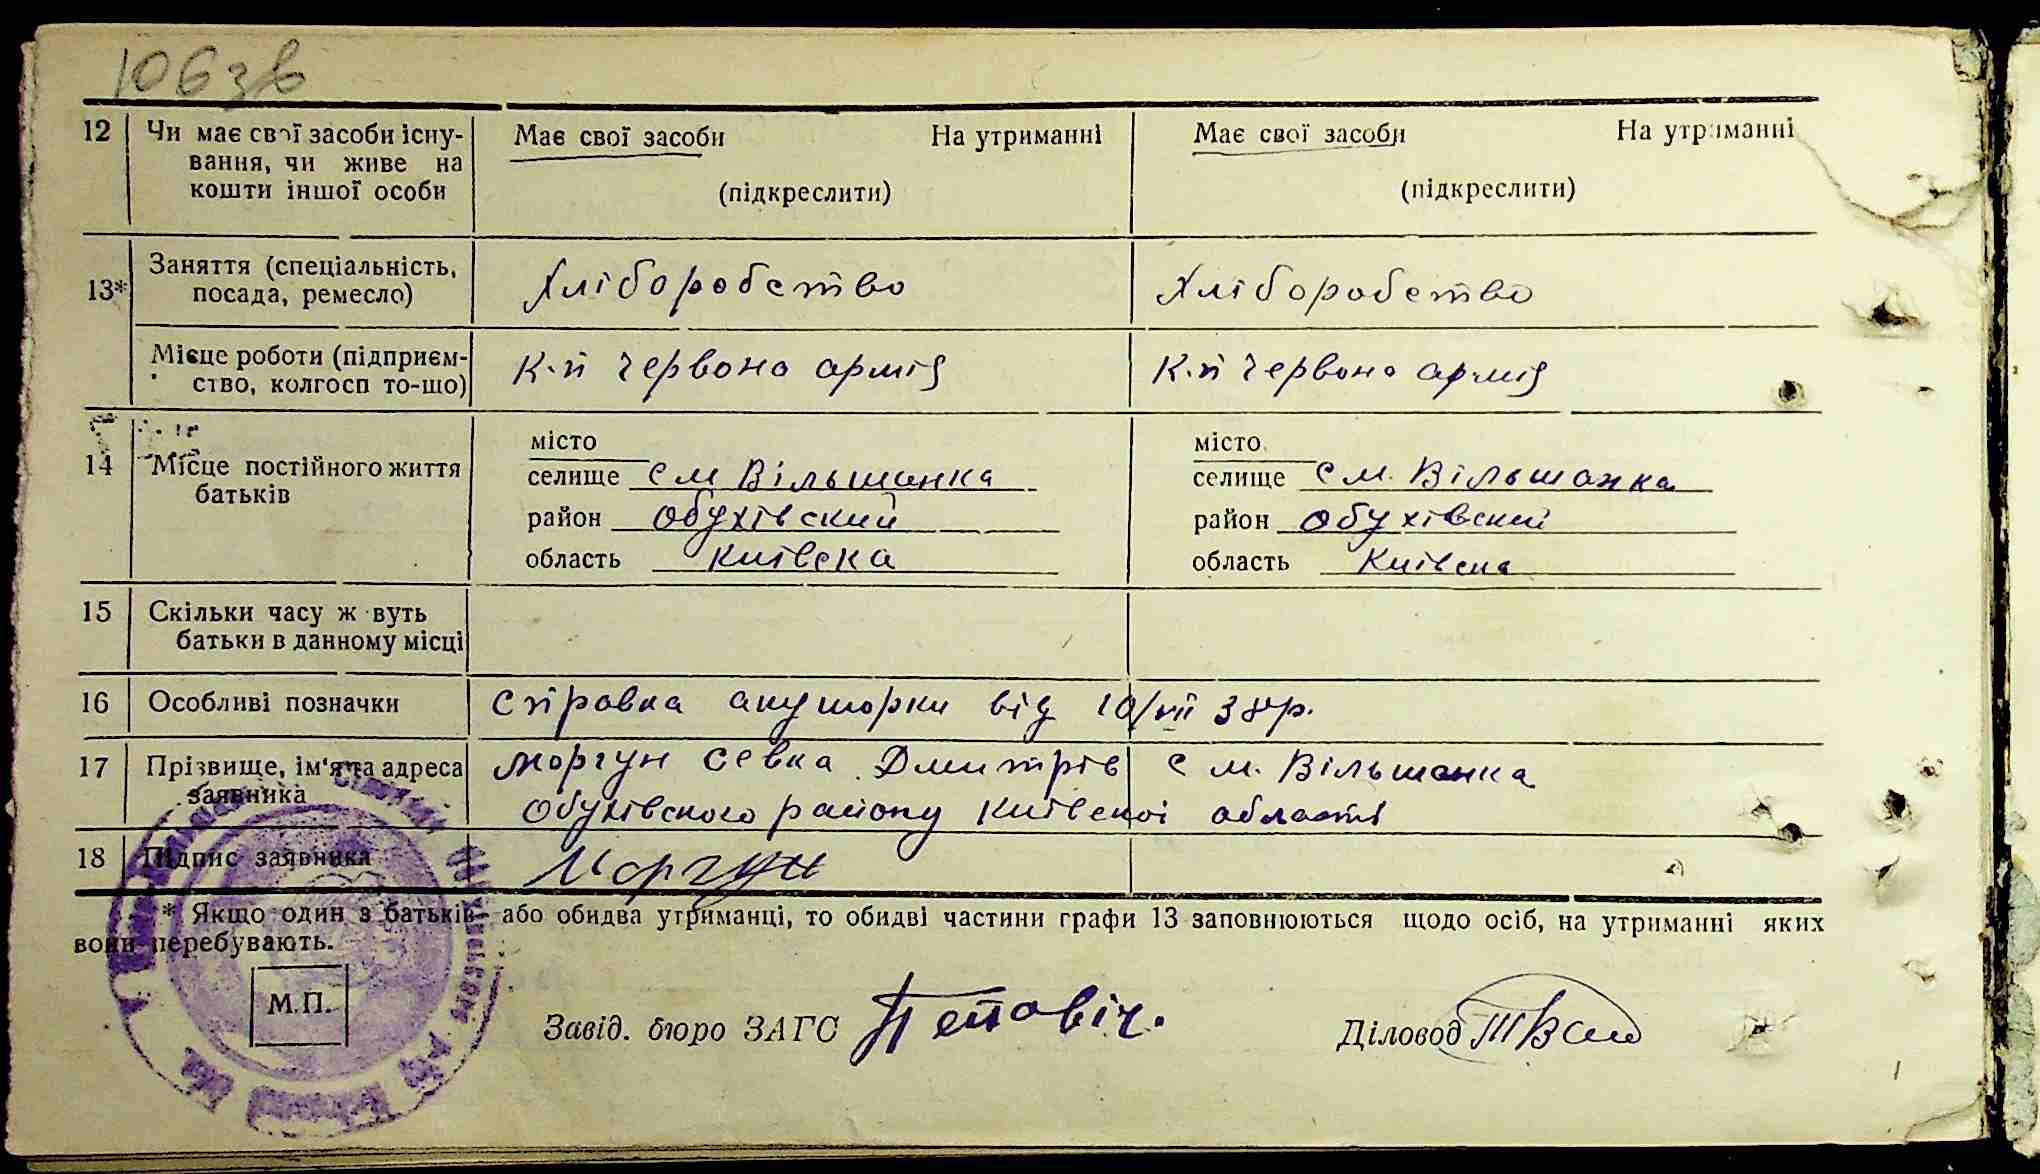 106зв
12 Чи має свої засоби існу- Має свої засоби На утриманні Має свої засоби На утриманні
вання, чи живе на
кошти іншої особи (підкреслити) (підкреслити)
13* Заняття (спеціальність,
посада, ремесло) Хліборобство Хліборобство
Місце роботи (підприєм-
ство, колгосп то-що) К-п Червона армія К-п Червона армія
14 Місце постійного життя
батьків
місто місто
селище с м Вільшанка селище с м. Вільшанка
район Обухівский район Обухівский
область Київска область Київска
15 Скільки часу ж вуть
батьки в данному місці
16 Особливі позначки Справка акушорки від 10/VII 38р.
17 Прізвище, ім'я та адреса Моргун Севка Дмитрів с м. Вільшанка
заявника Обухівского району Київскоі області
18 Підпис заявника Моргун
* Якщо один з батьків або обидва утриманці, то обидві частини графи 13 заповнюються щодо осіб, на утриманні яких
вони перебувають.
М.П.
Завід. бюро ЗАГС Діловод